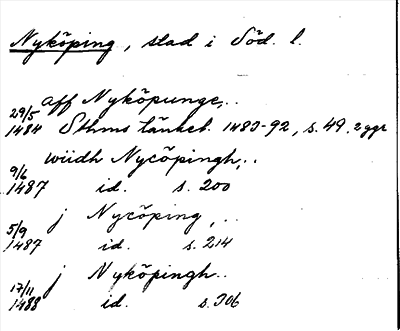 Nyköping, stad i Söd. l.
aff Nyköpunge,..
29/5 1484 Sthms tänkeb. 1483-92, s. 49, 2 ggr
wiidh Nycöpingh,..
9/6 1487 id. s. 200
j Nycöping,..
5/9 1487 id. s. 214
j Nyköpingh..
17/11 1488 id. s. 306